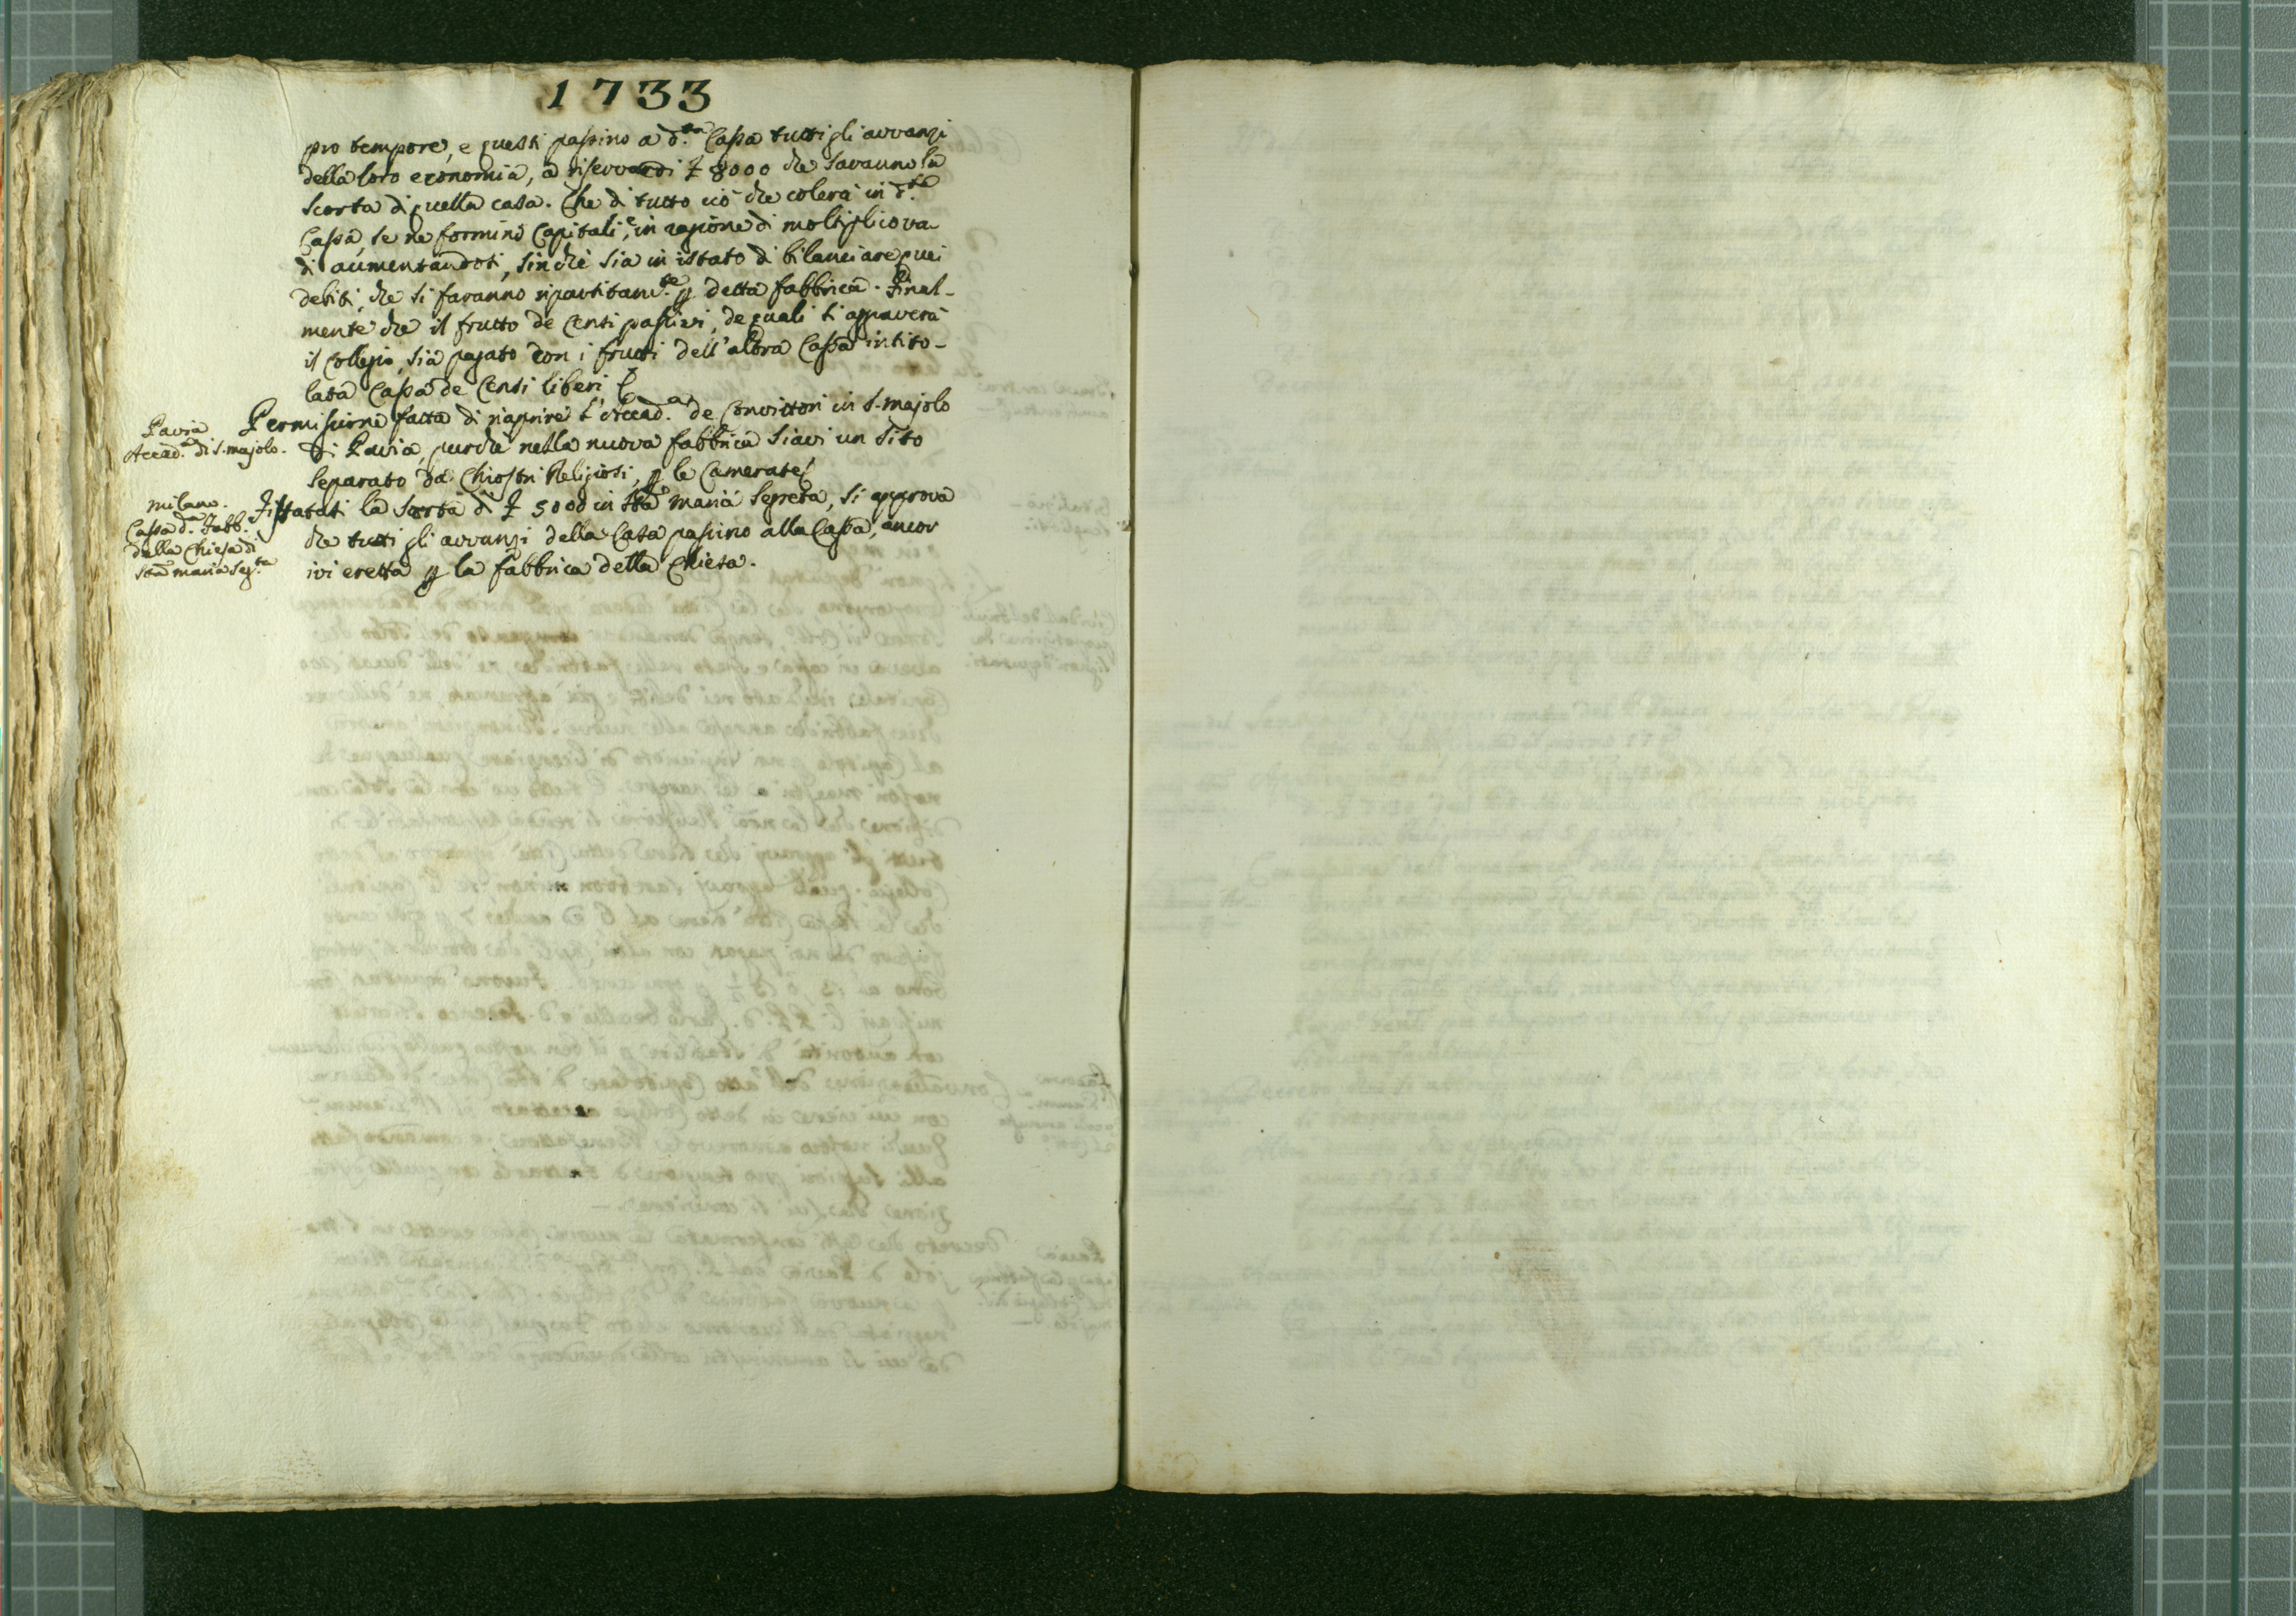 1733
pro tempore, e questi passino a d.ta Cassa tutti gli avvanzi
della loro economia, a riserva di £ 8000 che saranno la
scorta di quella casa. Che di tutto ciò che colerà in d.ta
Cassa, se ne formino Capitali, e in ragione di moltiplico va-
di aumentandosi, sinchè sia in istato di bilanciare quei
debiti, che si faranno ripartitam.te p detta fabbrica. Final-
mente che il frutto de Censi passivi, de quali s'aggraverà
il Collegio, sia pagato con i frutti dell'altra Cassa intito-
lata Cassa de Censi liberi
Pavia
Accad.a di S. majolo.
Permissione fatta di riaprire l'Accad.a de Convittori in S. majolo
di Pavia, purchè nella nuova fabbrica siavi un sito
separato da Chiostri Religiosi, p le Camerate
milano.
Cassa d.a Fabb.
della Chiesa di
Sta maria Seg.ta
Fissatasi la scorta di £ 5000 in Sta maria Segreta, si approva
che tutti gli avvanzi della Casa passino alla Cassa, ancor
ivi eretta p la fabbrica della Chiesa.